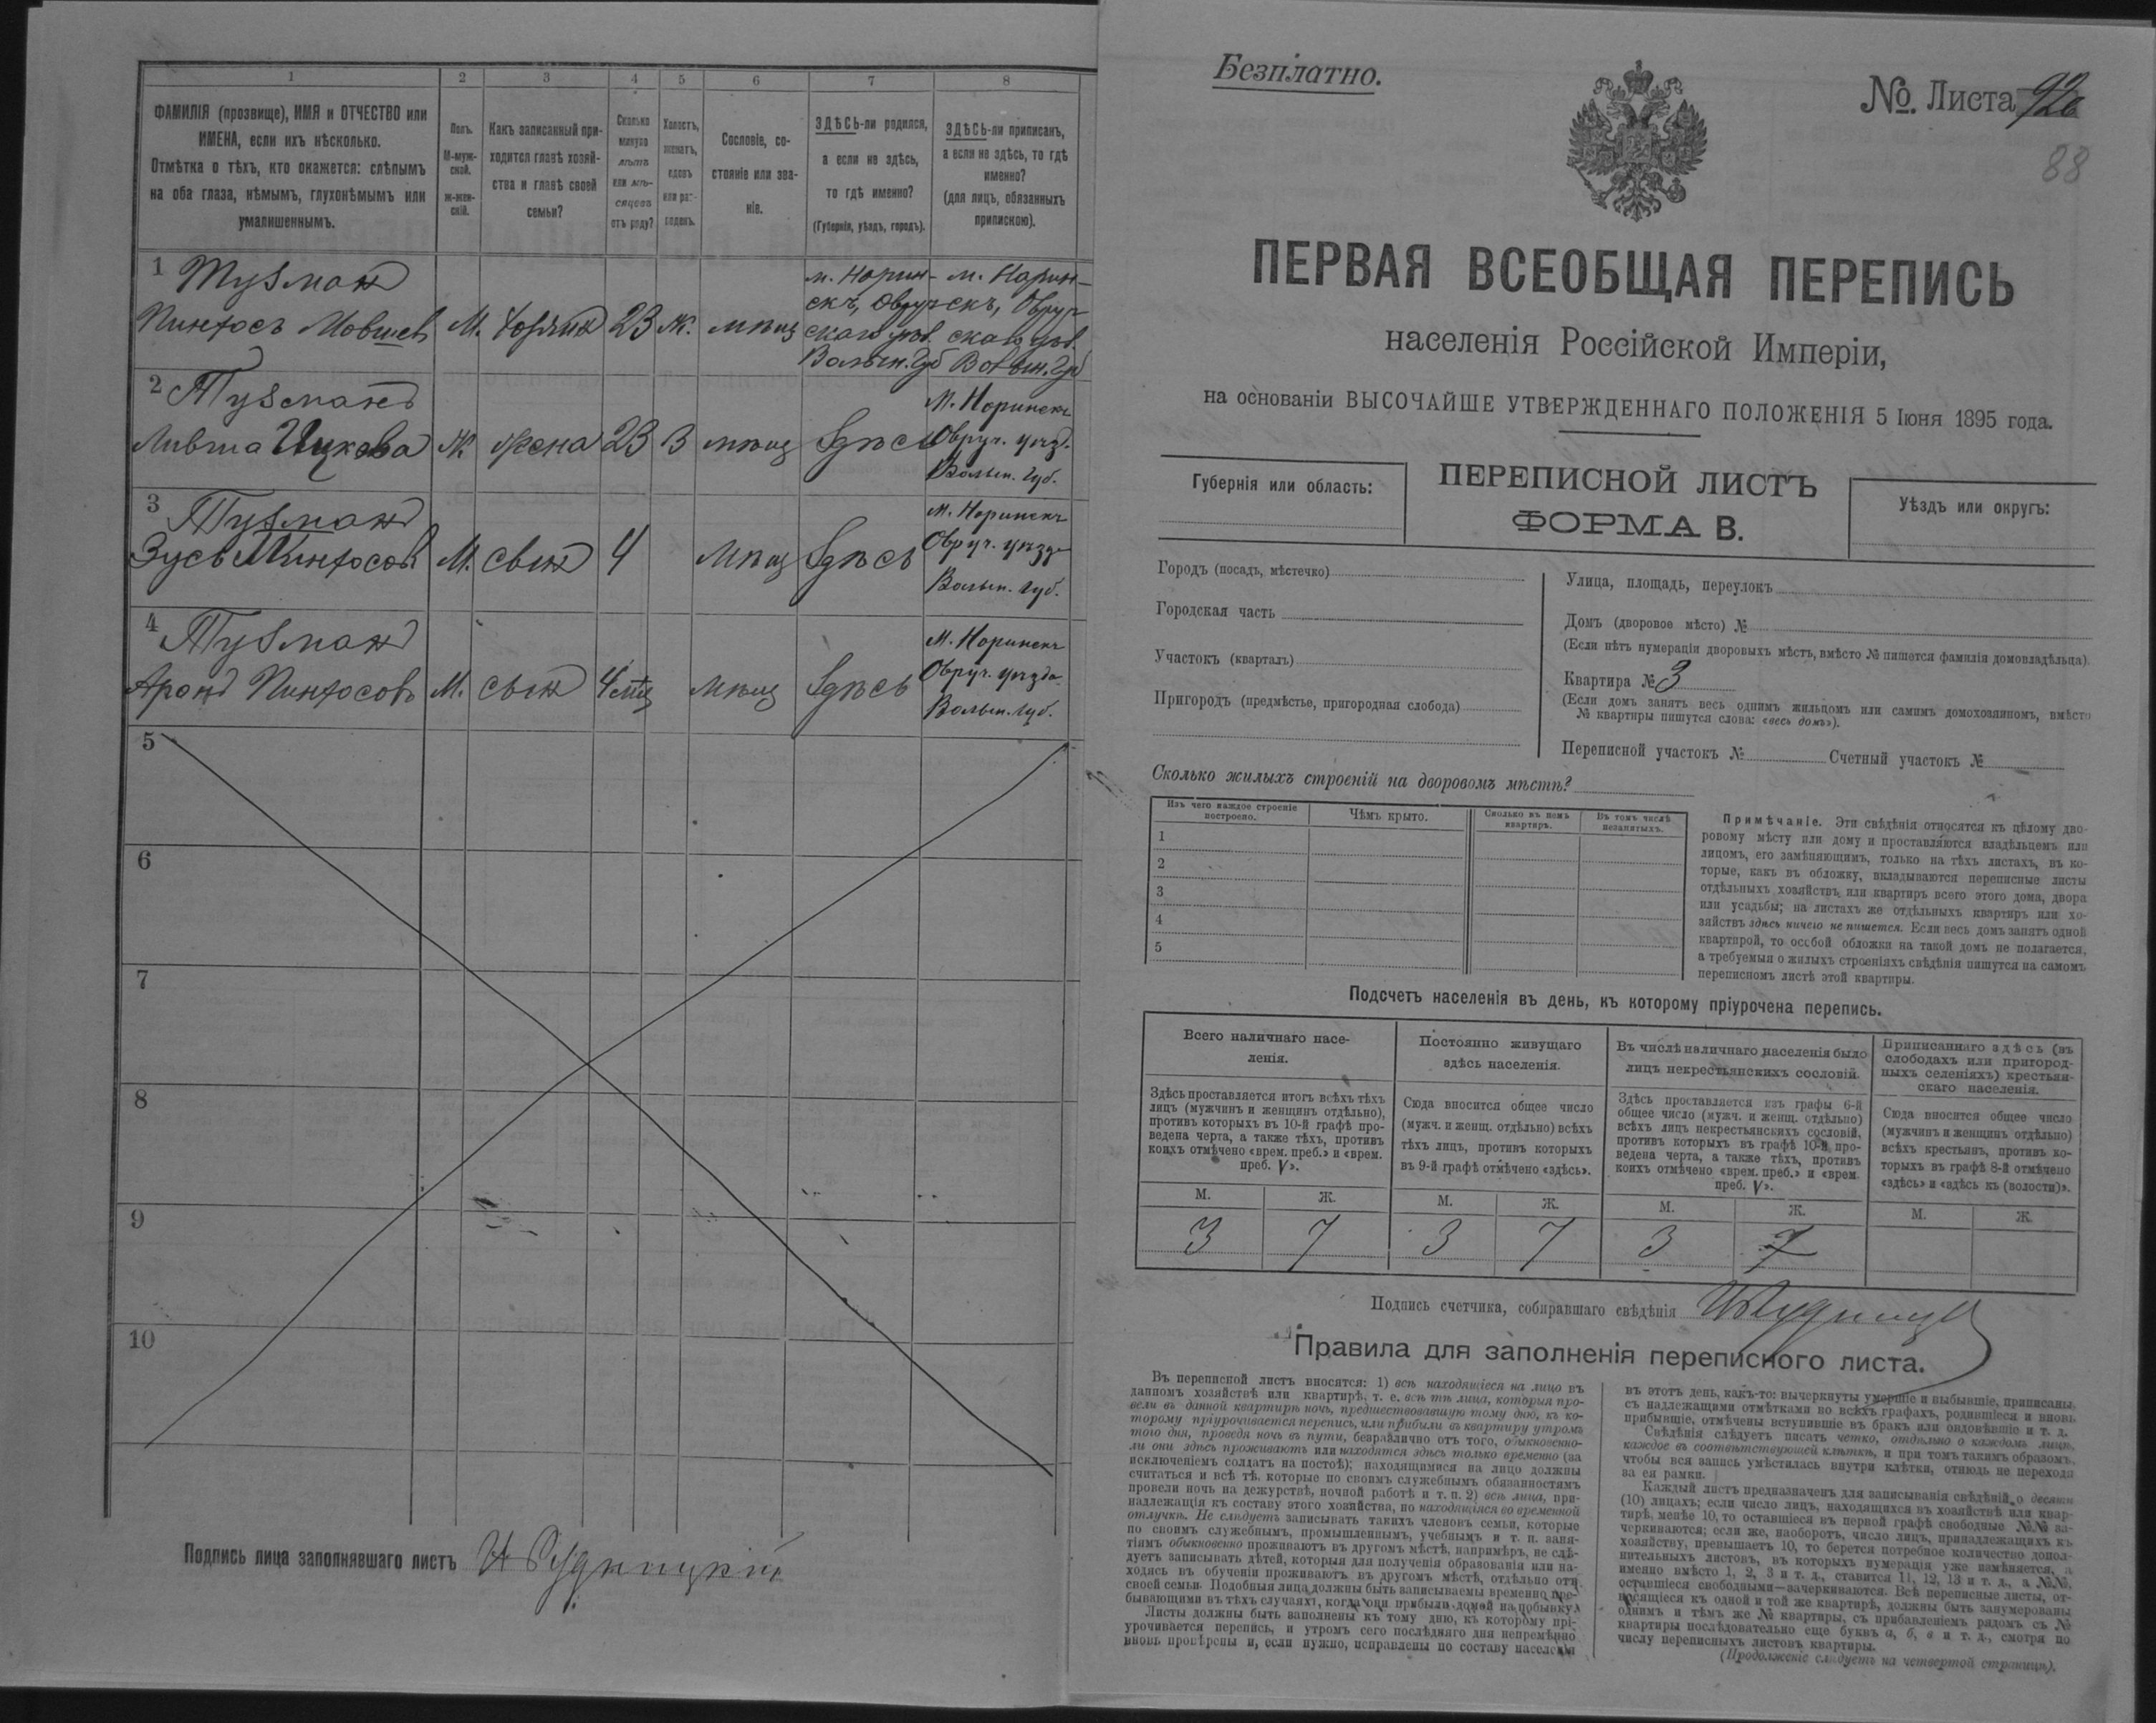 1 2 3 4 5 6 7 8
ФАМИЛІЯ (прозвище), ИМЯ и ОТЧЕСТВО или
ИМЕНА, если ихъ нѣсколько.
Отмѣтка о тѣхъ, кто окажется: слѣпымъ
на оба глаза, нѣмымъ, глухонѣмымъ или
умалишеннымъ.
Полъ.
М-муж-
ской.
ж-жен-
скій.
Какъ записанный при-
ходится главѣ хозяй-
ства и главѣ своей
семьи?
Сколько
минуло
лѣтъ
или мѣ-
сяцевъ
отъ роду?
Холостъ,
женатъ,
вдовъ
или раз-
веденъ.
Сословіе, со-
стояніе или зва-
ніе.
ЗДѢСЬ-ли родился,
а если не здѣсь,
то гдѣ именно?
(Губернія, уѣздъ, городъ).
ЗДѢСЬ-ли приписанъ,
а если не здѣсь, то гдѣ
именно?
(для лицъ, обязанныхъ
припискою).
1 Тузман
Пинхосъ Мовшев М. хозяин 23 ж. мѣщ
м. Норин-
скъ, Овруч-
скаго уѣз.
Волын. Губ
м. Норин-
скъ, Овруч-
скаго уѣз.
Волын. Губ
2 Тузман
Ливша Ицкова Ж жена 23 З мѣщ Здѣсь
м. Норинскъ
Овруч. уѣзд.
Волын. губ.
3 Тузман
Зусь Пинхосов М. сын 4 мѣщ Здѣсь
м. Норинскъ
Овруч. уѣзда
Волын. губ.
4 Тузман
Арон Пинхосовъ М. сын 4 мѣц мѣщ Здѣсь
м. Норинскъ
Овруч. уѣзда
Волын. губ.
5
6
7
8
9
10
Подпись лица заполнявшаго листъ
Безплатно.
№. Листа 92б
88
ПЕРВАЯ ВСЕОБЩАЯ ПЕРЕПИСЬ
населенія Россійской Имперіи,
на основаніи ВЫСОЧАЙШЕ УТВЕРЖДЕННАГО ПОЛОЖЕНІЯ 5 Іюня 1895 года.
Губернія или область:
ПЕРЕПИСНОЙ ЛИСТЪ
ФОРМА В.
Уѣздъ или округъ:
Городъ (посадъ, мѣстечко)
Городская часть
Участокъ (кварталъ)
Пригородъ (предмѣстье, пригородная слобода)
Улица, площадь, переулокъ
Домъ (дворовое мѣсто) №
(Если нѣтъ нумераціи дворовыхъ мѣстъ, вмѣсто № пишется фамилія домовладѣльца).
Квартира № 3
(Если домъ занятъ весь однимъ жильцомъ или самимъ домохозяиномъ, вмѣсто
№ квартиры пишутся слова: «весь домъ»).
Переписной участокъ № Счетный участокъ №
Сколько жилыхъ строеній на дворовомъ мѣстѣ?
Изъ чего каждое строеніе
построено.
Чѣмъ крыто.
Сколько въ немъ
квартиръ.
Въ томъ числѣ
незанятыхъ.
1
2
3
4
5
Примѣчаніе. Эти свѣдѣнія относятся къ цѣлому дво-
ровому мѣсту или дому и проставляются владѣльцемъ или
лицомъ, его замѣняющимъ, только на тѣхъ листахъ, въ ко-
торые, какъ въ обложку, вкладываются переписные листы
отдѣльныхъ хозяйствъ или квартиръ всего этого дома, двора
или усадьбы; на листахъ же отдѣльныхъ квартиръ или хо-
зяйствъ здѣсь ничего не пишется. Если весь домъ занятъ одной
квартирой, то особой обложки на такой домъ не полагается,
а требуемыя о жилыхъ строеніяхъ свѣдѣнія пишутся на самомъ
переписномъ листѣ этой квартиры.
Подсчетъ населенія въ день, къ которому пріурочена перепись.
Всего наличнаго насе-
ленія.
Здѣсь проставляется итогъ всѣхъ тѣхъ
лицъ (мужчинъ и женщинъ отдѣльно),
противъ которыхъ въ 10-й графѣ про-
ведена черта, а также тѣхъ, противъ
коихъ отмѣчено «врем. преб.» и «врем.
преб. V».
Постоянно живущаго
здѣсь населенія.
Сюда вносится общее число
(мужч. и женщ. отдѣльно) всѣхъ
тѣхъ лицъ, противъ которыхъ
въ 9-й графѣ отмѣчено «здѣсь».
Въ числѣ наличнаго населенія было
лицъ некрестьянскихъ сословій.
Здѣсь проставляется изъ графы 6-й
общее число (мужч. и женщ. отдѣльно)
всѣхъ лицъ некрестьянскихъ сословій,
противъ которыхъ въ графѣ 10-й про-
ведена черта, а также тѣхъ, противъ
коихъ отмѣчено «врем. преб.» и «врем.
преб. V».
Приписаннаго здѣсь (въ
слободахъ или пригород-
ныхъ селеніяхъ) крестьян-
скаго населенія.
Сюда вносится общее число
(мужчинъ и женщинъ отдѣльно)
всѣхъ крестьянъ, противъ ко-
торыхъ въ графѣ 8-й отмѣчено
«здѣсь» и «здѣсь къ (волости)».
М. Ж. М. Ж. М. Ж. М. Ж.
3 7 3 7 3 7
Подпись счетчика, собиравшаго свѣдѣнія
Правила для заполненія переписного листа.
Въ переписной листъ вносятся: 1) всѣ находящіеся на лицо въ
данномъ хозяйствѣ или квартирѣ, т. е. всѣ тѣ лица, которыя про-
вели въ данной квартирѣ ночь, предшествовавшую тому дню, къ ко-
торому пріурочивается перепись, или прибыли въ квартиру утромъ
того дня, проведя ночь въ пути, безразлично отъ того, обыкновенно-
ли они здѣсь проживаютъ или находятся здѣсь только временно (за
исключеніемъ солдатъ на постоѣ); находящимися на лицо должны
считаться и всѣ тѣ, которые по своимъ служебнымъ обязанностямъ
провели ночь на дежурствѣ, ночной работѣ и т. п. 2) всѣ лица, при-
надлежащія къ составу этого хозяйства, но находящіяся во временной
отлучкѣ. Не слѣдуетъ записывать такихъ членовъ семьи, которые
по своимъ служебнымъ, промышленнымъ, учебнымъ и т. п. заня-
тіямъ обыкновенно проживаютъ въ другомъ мѣстѣ, напримѣръ, не слѣ-
дуетъ записывать дѣтей, которыя для полученія образованія или на-
ходясь въ обученіи проживаютъ въ другомъ мѣстѣ, отдѣльно отъ
своей семьи. Подобныя лица должны быть записываемы временно пре-
бывающими въ тѣхъ случаяхъ, когда они прибыли домой на побывку.
Листы должны быть заполнены къ тому дню, къ которому прі-
урочивается перепись, и утромъ сего послѣдняго дня непремѣнно
вновь провѣрены и, если нужно, исправлены по составу населенія
въ этотъ день, какъ-то: вычеркнуты умершіе и выбывшіе, приписаны,
съ надлежащими отмѣтками во всѣхъ графахъ, родившіеся и вновь
прибывшіе, отмѣчены вступившіе въ бракъ или овдовѣвшіе и т. д.
Свѣдѣнія слѣдуетъ писать четко, отдѣльно о каждомъ лицѣ,
каждое въ соотвѣтствующей клѣткѣ, и при томъ такимъ образомъ,
чтобы вся запись умѣстилась внутри клѣтки, отнюдь не переходя
за ея рамки.
Каждый листъ предназначенъ для записыванія свѣдѣній о десяти
(10) лицахъ; если число лицъ, находящихся въ хозяйствѣ или квар-
тирѣ, менѣе 10, то оставшіеся въ первой графѣ свободные №№ за-
черкиваются; если же, наоборотъ, число лицъ, принадлежащихъ къ
хозяйству, превышаетъ 10, то берется потребное количество допол-
нительныхъ листовъ, въ которыхъ нумерація уже измѣняется, а
именно вмѣсто 1, 2, 3 и т. д., ставится 11, 12, 13 и т. д., а №№,
оставшіеся свободными—зачеркиваются. Всѣ переписные листы, от-
носящіеся къ одной и той же квартирѣ, должны быть занумерованы
однимъ и тѣмъ же № квартиры, съ прибавленіемъ рядомъ съ №
квартиры послѣдовательно еще буквъ а, б, в и т. д., смотря по
числу переписныхъ листовъ квартиры.
(Продолженіе слѣдуетъ на четвертой страницѣ).